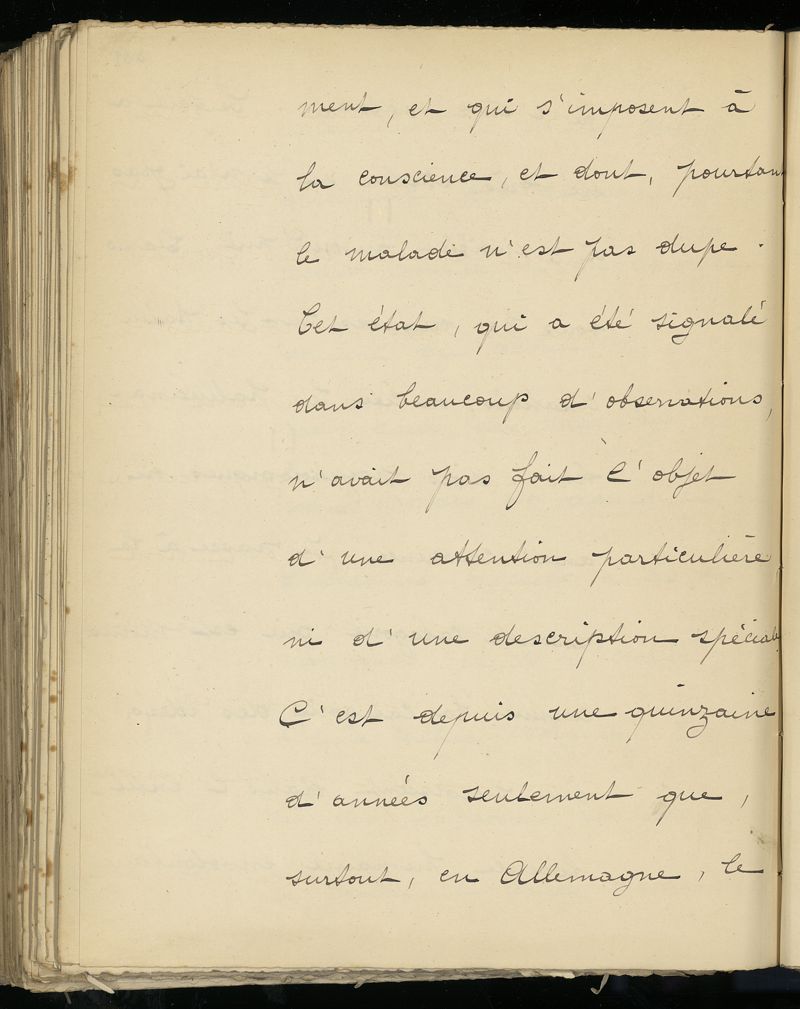 ment, et qui s'imposent à
la conscience, et dont, pourtant
le malade n'est pas dupe.
Cet état, qui a été signalé
dans beaucoup d'observations,
n'avait pas fait l'objet
d'une attention particulière
ni d'une description spéciale
C'est depuis une quinzaine
d'années seulement que,
surtout, en Allemagne, le